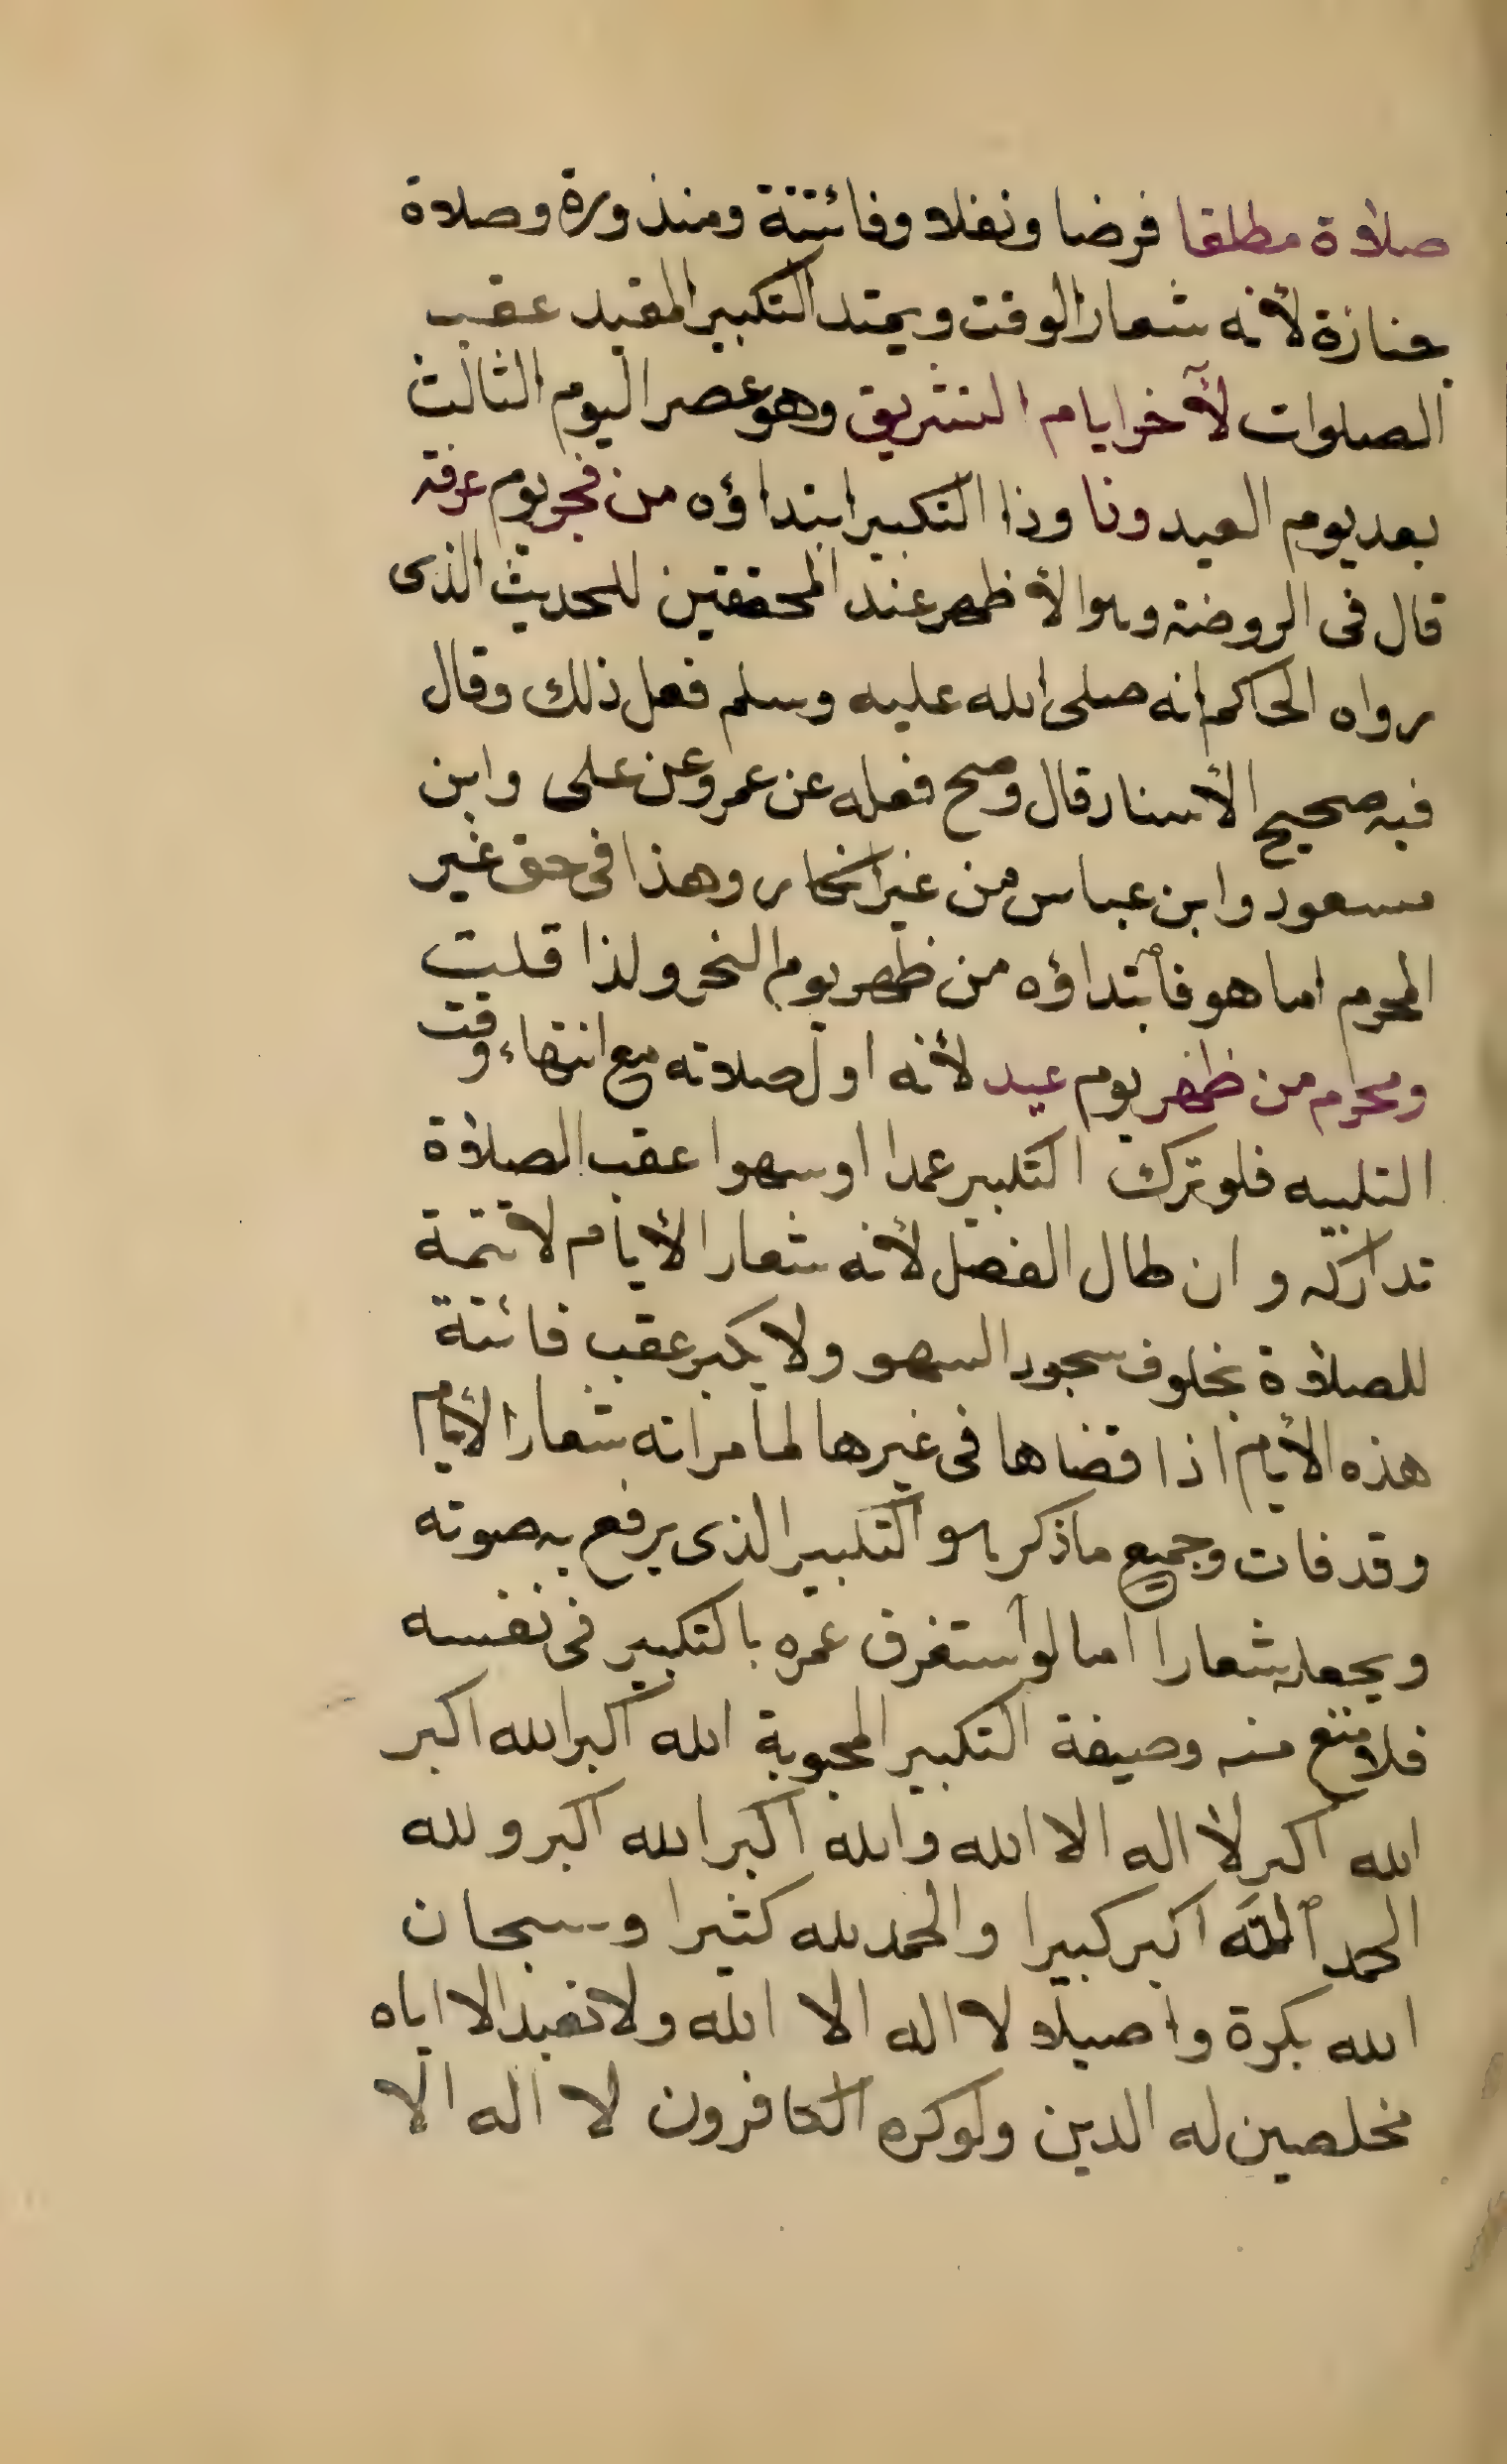 صلاة مطلقا فرضا ونفلا وفائتة ومنذورة وصلاة
جنازة لأنه شعار الوقت ويمتد التكبير المقيد عقب
الصلوات لآخر ايام التشريق وهو عصر اليوم الثالث
بعد يوم العيد وذا التكبير ابتداؤه من فجر يوم عرفة
قال فى الروضة وهو الأظهر عند المحققين للحديث الذى
رواه الحاكم انه صلى الله عليه وسلم فعل ذلك وقال
فيه صحيح الأسناد قال وصح فعله عن عمر وعن على وابن
مسعود وابن عباس من غير انكار وهذا فى حق غير
المحرم اما هو فأبتداؤه من ظهر يوم النحر ولذا قلت
ومحرم من ظهر يوم عيد لأنه اول صلاته مع انتهاء وقت
التلبيه فلو ترك التكبير عمدا او سهوا عقب الصلاة
تداركه و ان طال الفصل لأنه شعار الأيام لا تتمة
للصلاة بخلاف سجود السهو ولا يكبر عقب فائتة
هذه الأيام اذا قضاها فى غيرها لما مر انه شعار الأيام
وقد فات وجميع ما ذكر هو التكبير الذى يرفع به صوته
ويجعله شعارا اما لو أستغرق عمره بالتكبير فى نفسه
فلا منع منه وصيغة التكبير المحبوبة الله اكبر الله اكبر
الله اكبر لا اله الا الله والله اكبر الله اكبر ولله
الحمد الله اكبر كبيرا والحمد لله كثيرا وسبحان
الله بكرة واصيلا لا اله الا الله ولا نعبد الا اياه
مخلصين له الدين ولو كره الكافرون لا اله الا